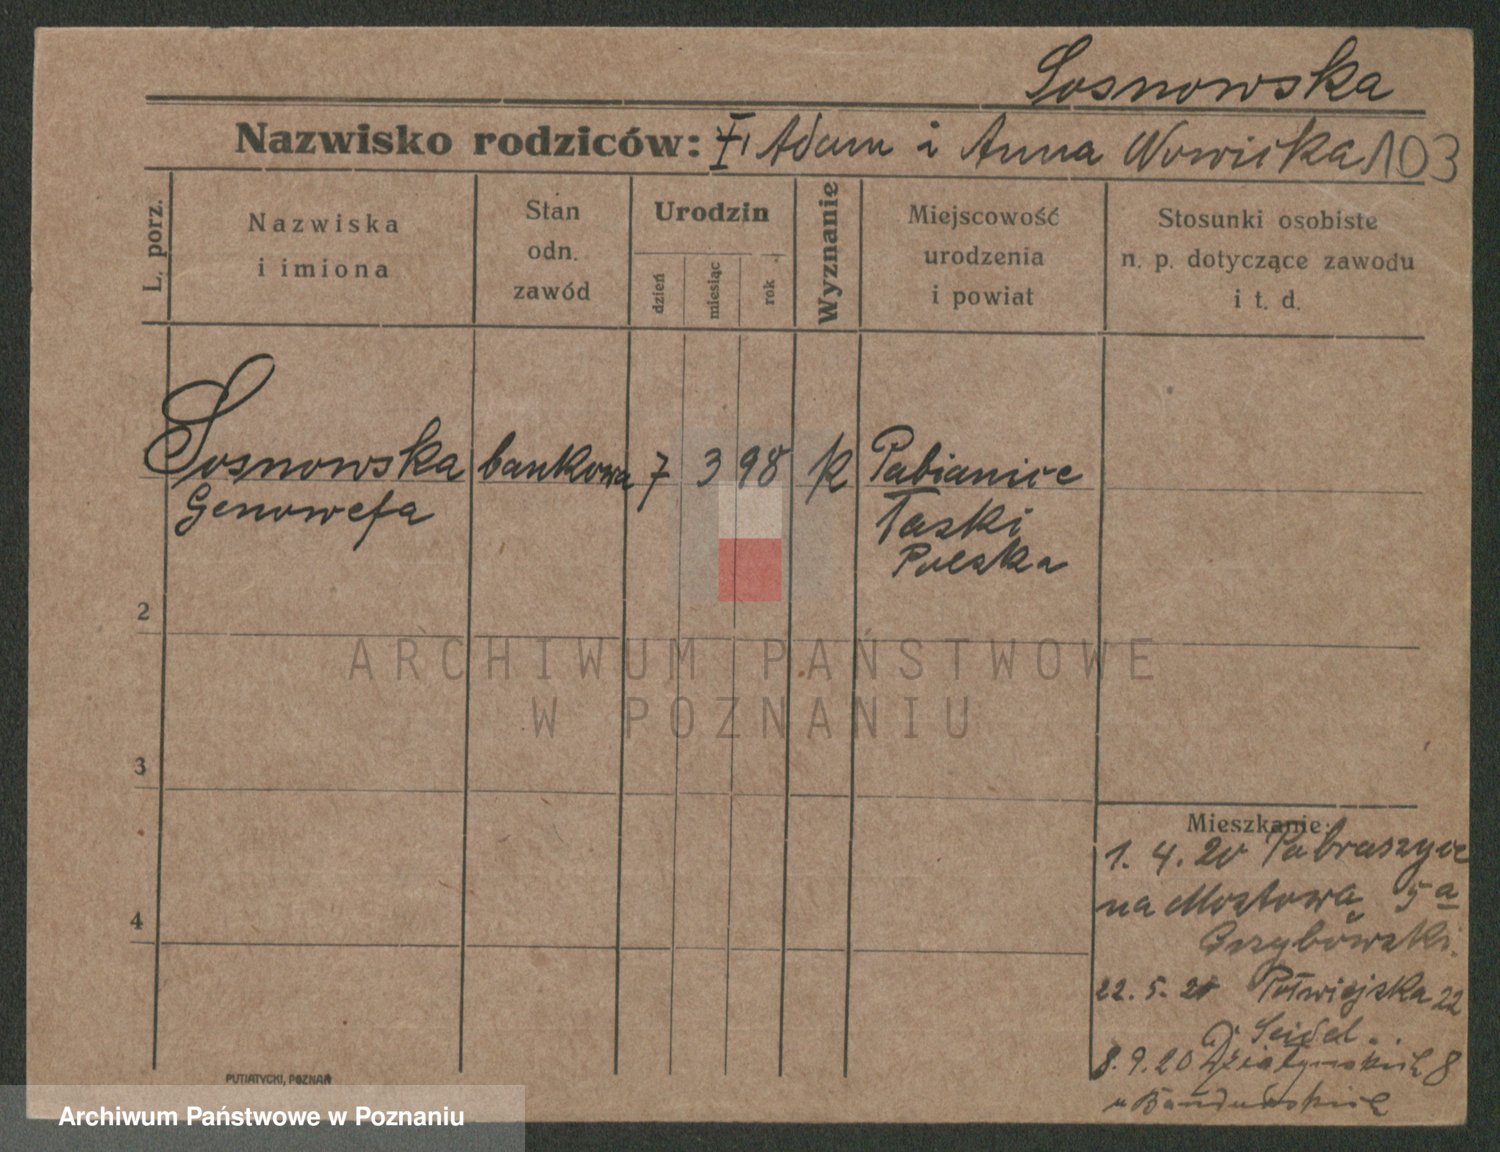 Sosnowska
Nazwisko rodziców: Adam i Anna Nowicka 103
L. porz.
Nazwiska
i imiona
Stan
odn.
zawód
Urodzin
dzień
miesiąc
rok
Wyznanie
Miejscowość
urodzenia
i powiat
Stosunki osobiste
n. p. dotyczące zawodu
i t. d.
Sosnowska bankowa 7 3 98 k Pabianice
Genowefa Łaski
Polska
2
ARCHIWUM PAŃSTWOWE
W POZNANIU
3
Mieszkanie:
1. 4. 20
na Mostowa 5a
4
Grzybowski.
22. 5. 20 Półwiejska 22
Seidel
8. 9. 20 Działyńskich 8
u
PUTIATYCKI, POZNAŃ
Archiwum Państwowe w Poznaniu